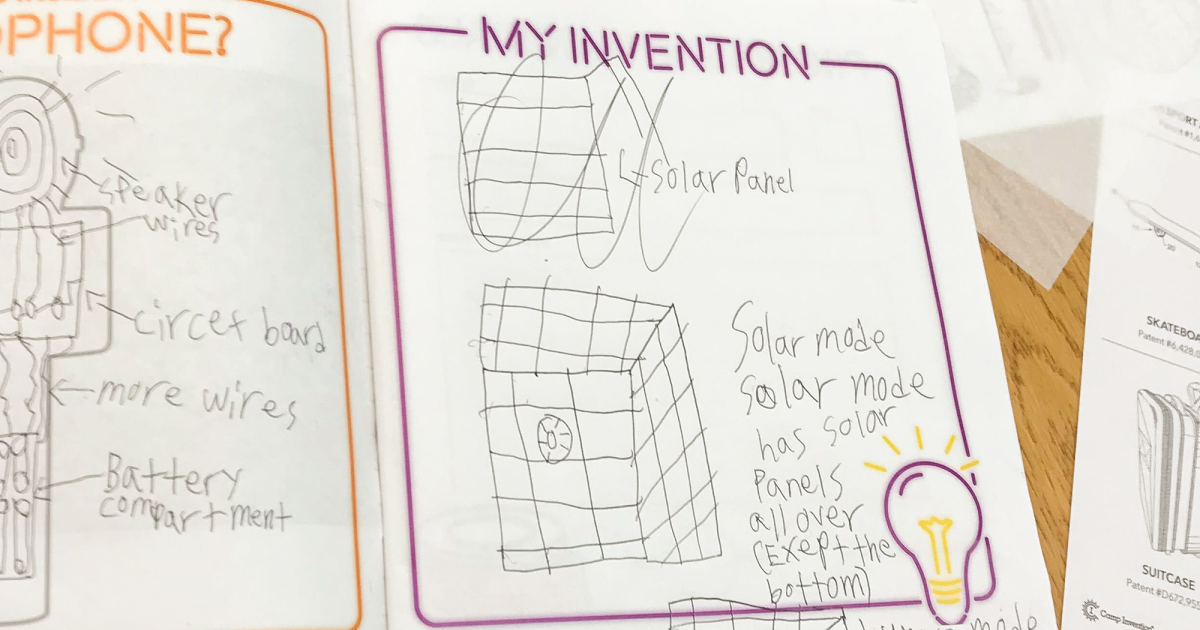 PHONE?
speaker
wires
circet board
more wires
Battery
compartment
MY INVENTION
Solar Panel
Solar mode
solar mode
has solar
Panels
all over
(Exept the
bottom)
mode
SKATEBOA
Patent #6,428,0
SUITCASE
Patent #D672,955
Camp Invention